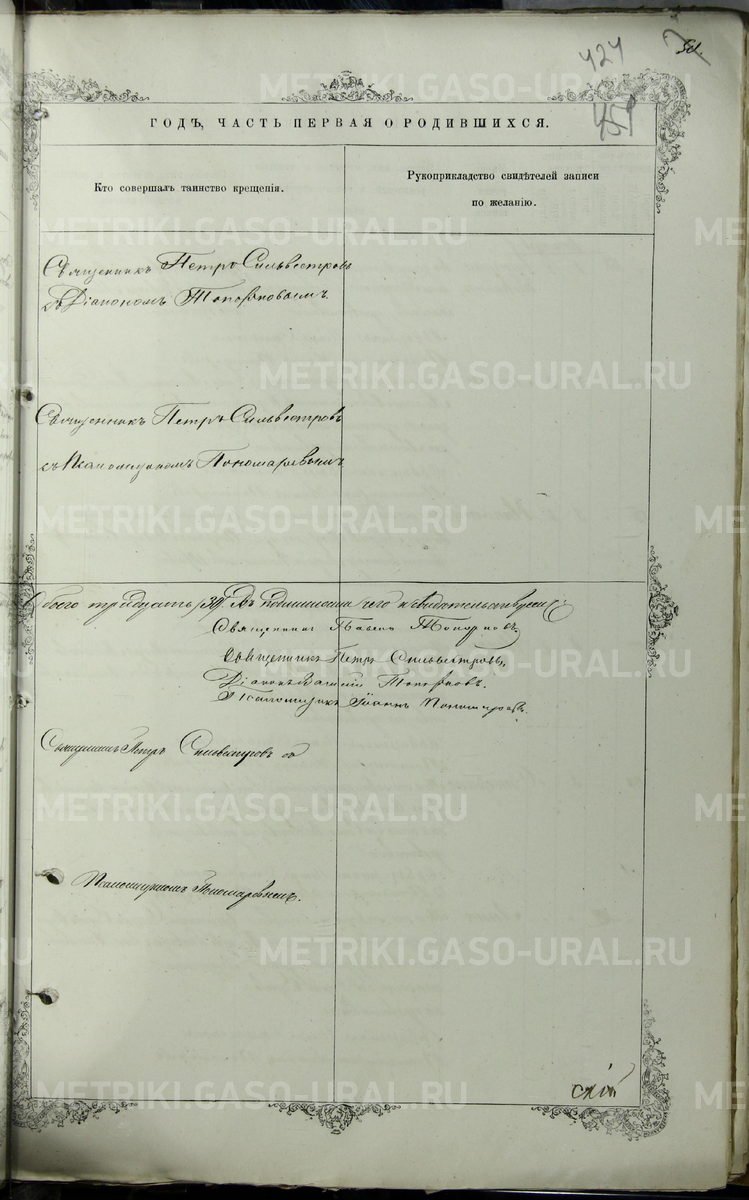 424
ГОДЪ, ЧАСТЬ ПЕРВАЯ О РОДИВШИХСЯ.
Кто совершалъ таинство крещенія.
Рукоприкладство свидѣтелей записи
по желанію.
Священникъ Петръ Сильвестровъ
съ Діакономъ Топорковымъ
Священникъ Петръ Сильвестровъ
съ Псаломщикомъ Пономаревымъ
обоего тридцать /30/. Въ чемъ и свидѣтельствуемъ:
Священникъ Павелъ Топорковъ.
Священникъ Петръ Сильвестровъ,
Діаконъ Василій Топорковъ.
Псаломщикъ Іоаннъ Пономаревъ.
Священникъ Петръ Сильвестровъ съ
Псаломщикомъ Пономаревымъ.
METRIKI.GASO-URAL.RU